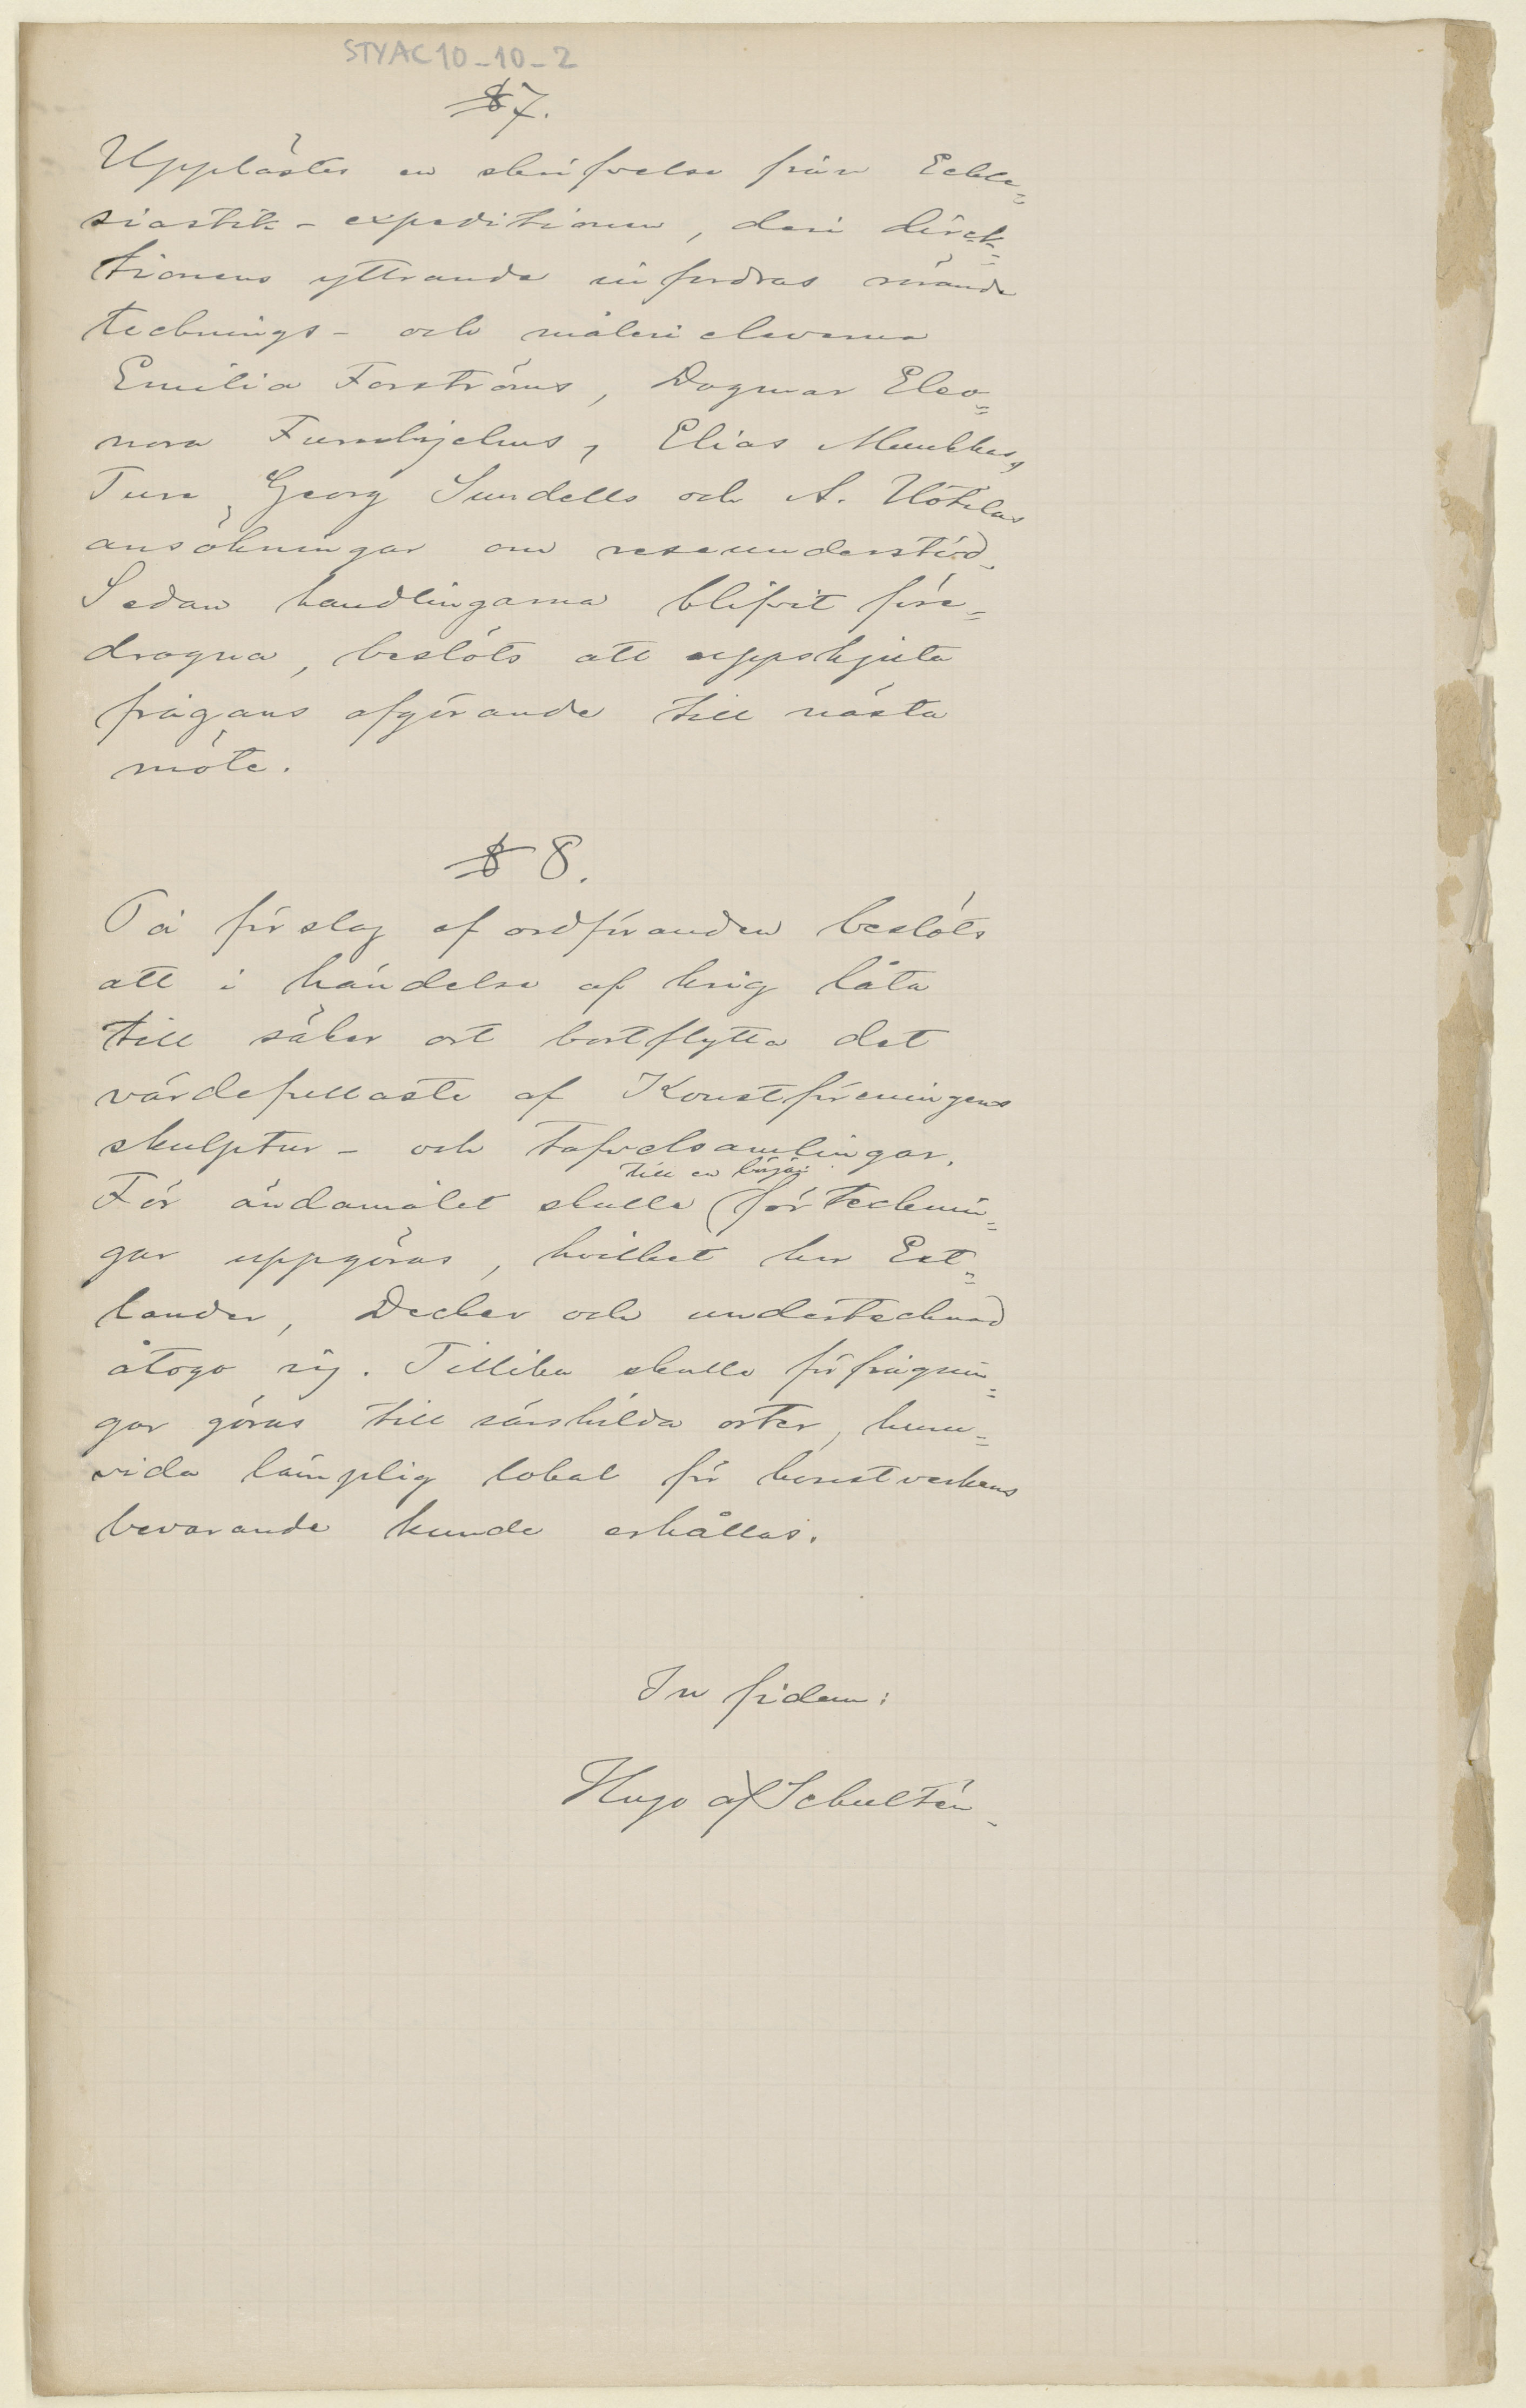 STYAC10_10_2
§ 7.
Upplästes en skrifvelse från Eckle=
siastik-expeditionen, deri direk=
tionens yttrande infordras rörande
tecknings- och målerieleverna
Emilia Forströms, Dagmar Eleo=
nora Furuhjelms, Elias Muukkas,
Ture Georg Sundells och A. Uotilas
ansökningar om reseunderstöd.
Sedan handlingarna blifvit före=
dragna, beslöts att uppskjuta
frågans afgörande till nästa
möte.
§ 8.
På förslag af ordföranden beslöts
att i händelse af krig låta
till säker ort bortflytta det
värdefullaste af Konstföreningens
skulptur- och tafvelsamlingar.
till en början
För ändamålet skulle (förtecknin=
gar uppgöras, hvilket hrr Est=
lander, Decker och undertecknad
åtogo sig. Tillika skulle förfrågnin=
gar göras till särskilda orter, huru=
vida lämplig lokal för konstverkens
bevarande kunde erhållas.
In fidem:
Hugo af Schultén